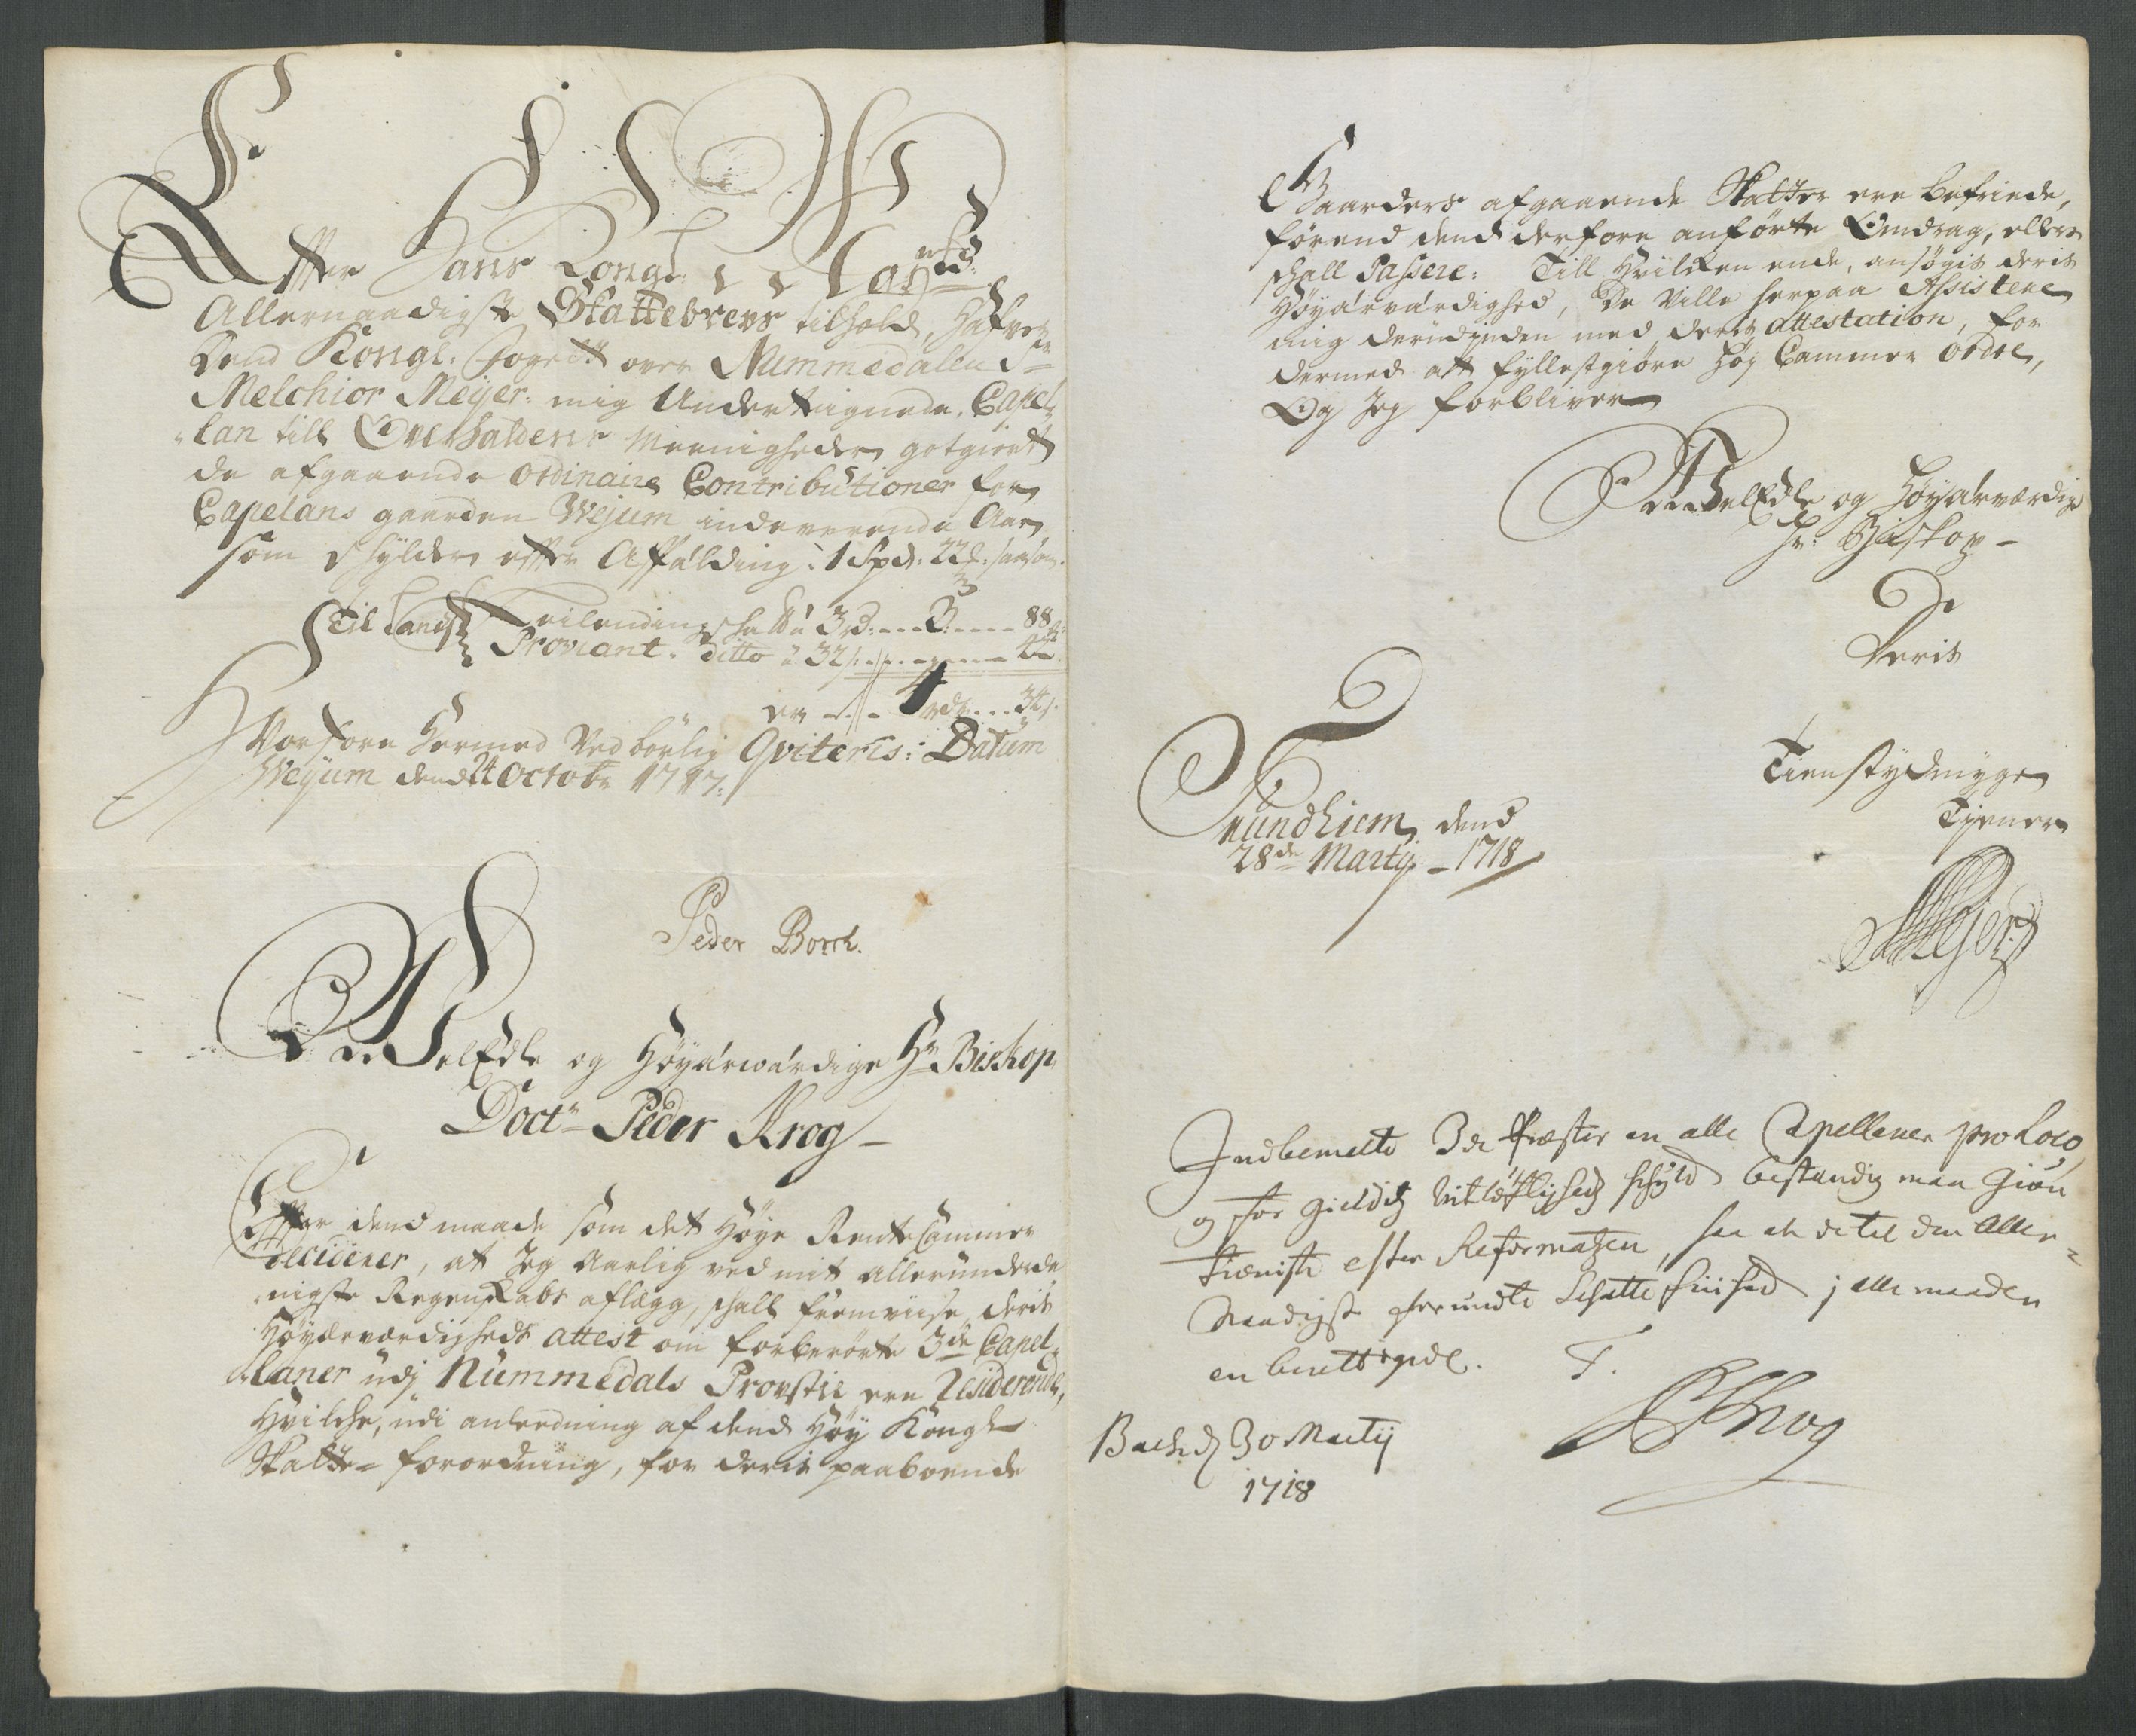 Effter Hans Kongl: Mayts:
Allernaadigste Skattebrevs tilhold, hafver
Kongl: Fogett over Nummedallen Sr
Melchior Meijer: mig Underteignede, Capel-
lan till Overhaldens Meenigheder gotgiort
de afgaaende ordinaire Contributioner for
Capelans gaarden Wejum indeverende Aar
som schylder effter Affälding: 1 Spd: 22
Til Landsk Leilendings schatt á 3 ----3:----88
Proviant. ditto á 32 ----42
er --- 4 rdr...34
Hvorfore hermed Vedbørlig Qviteris: Datum
Wejum dend 24 Octobr 1717:
Peder Borch.
WelEdle og Høyärwärdige Hr Biskop
Doctr Peder Krog
Effter dend maade som det Høye Rente Cammer
deciderer, at Jeg Aarlig ved mit allerunderda-
nigste Regenskabs aflægg, schall fremviise deris
Høyærværdigheds attest om forberørte 3de Capel-
laner udj Nummedals Provstie ere Residerende,
Hvilche, udi anledning af dend Høy Kongl
Skatte-forordning, for deris paaboende
Gaarders afgaaende Skatter ere befriede,
førend dend derfore anførte Omdrag, ellers
schall Passere: Till Hvilken ende, ansøgis deris
Høyärvärdighed, De Ville herpaa Assistere
mig derudjnden med deris attestation, for
dermed att fyllestgiøre Høy Cammer ordre,
Og Jeg forbliver
WelEdle og Høyärværdige
Hr: Biskop
Deris
Trundhiem dend
28de Martij 1718
Tienstydmyge
Tjener
MMejer
Indbemelte 3de Præster er alle Capellaner pro Loco,
og for Gieldetz Vitløftigheds schyld bestandig maa Giøre
Tieniste efter Reformatzen, saa at de til den Aller-
naadigst forundte Schatte friihed j alle maader
er berettigede. T.
PKrog
Bach d 30 Martij
1718